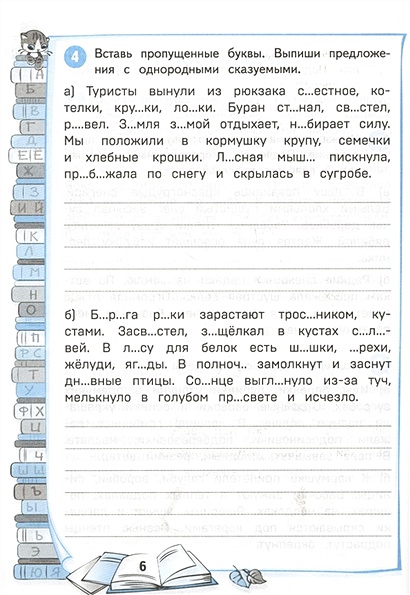 4 Вставь пропущенные буквы. Выпиши предложе-
ния с однородными сказуемыми.
а) Туристы вынули из рюкзака с...естное, ко-
телки, кру...ки, ло...ки. Буран ст...нал, св...стел,
р....вел. З...мля з...мой отдыхает, н...бирает силу.
Мы положили в кормушку крупу, семечки
и хлебные крошки. Л...сная мыш... пискнула,
пр...б...жала по снегу и скрылась в сугробе.
б) Б...р...га р...ки зарастают трос...ником, ку-
стами. Засв...стел, з...щёлкал в кустах с...л...-
вей. В л...су для белок есть ш...шки, ...рехи,
жёлуди, яг...ды. В полноч.. замолкнут и заснут
дн...вные птицы. Со...нце выгл...нуло из-за туч,
мелькнуло в голубом пр...свете и исчезло.
А
Б
В
Г
Д
Е Ё
Ж
З
И Й
К
Л
М
Н
О
П
Р С
Т
У
Ф Х
Ц
Ч
Ш Щ
Ъ
Ы
Ь
Э
Ю Я
6